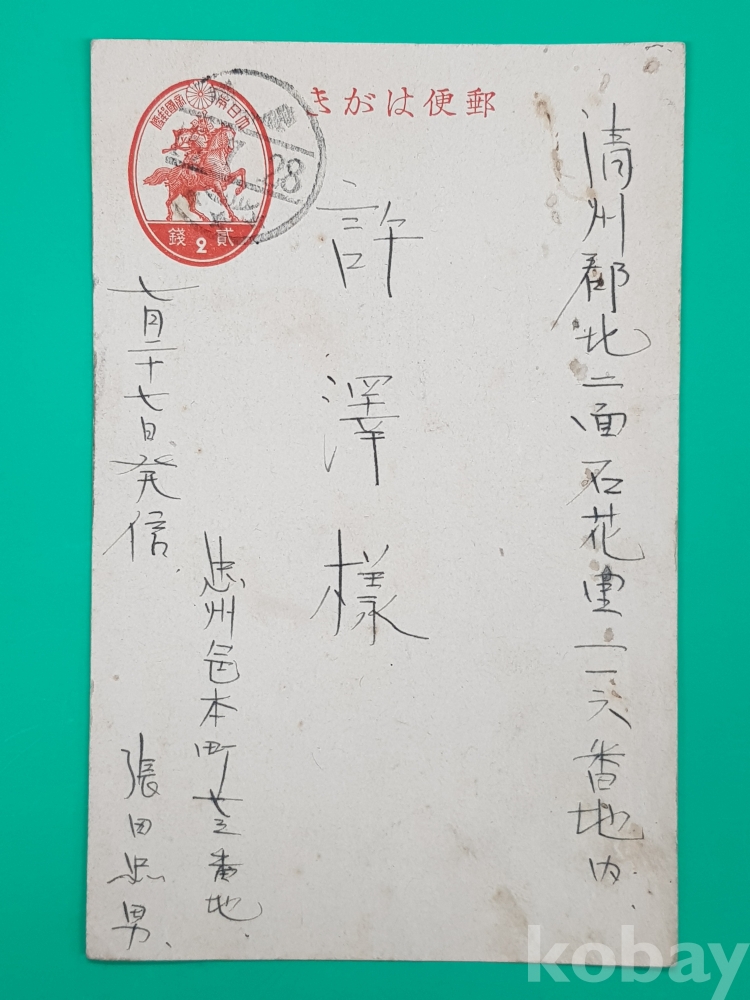 郵便はがき
大日本帝國郵便
貳 2 錢
28
清州郡北二面石花里一一六番地内
許澤様
七月二十七日発信
忠州邑本町廿三番地
張田忠男
kobay